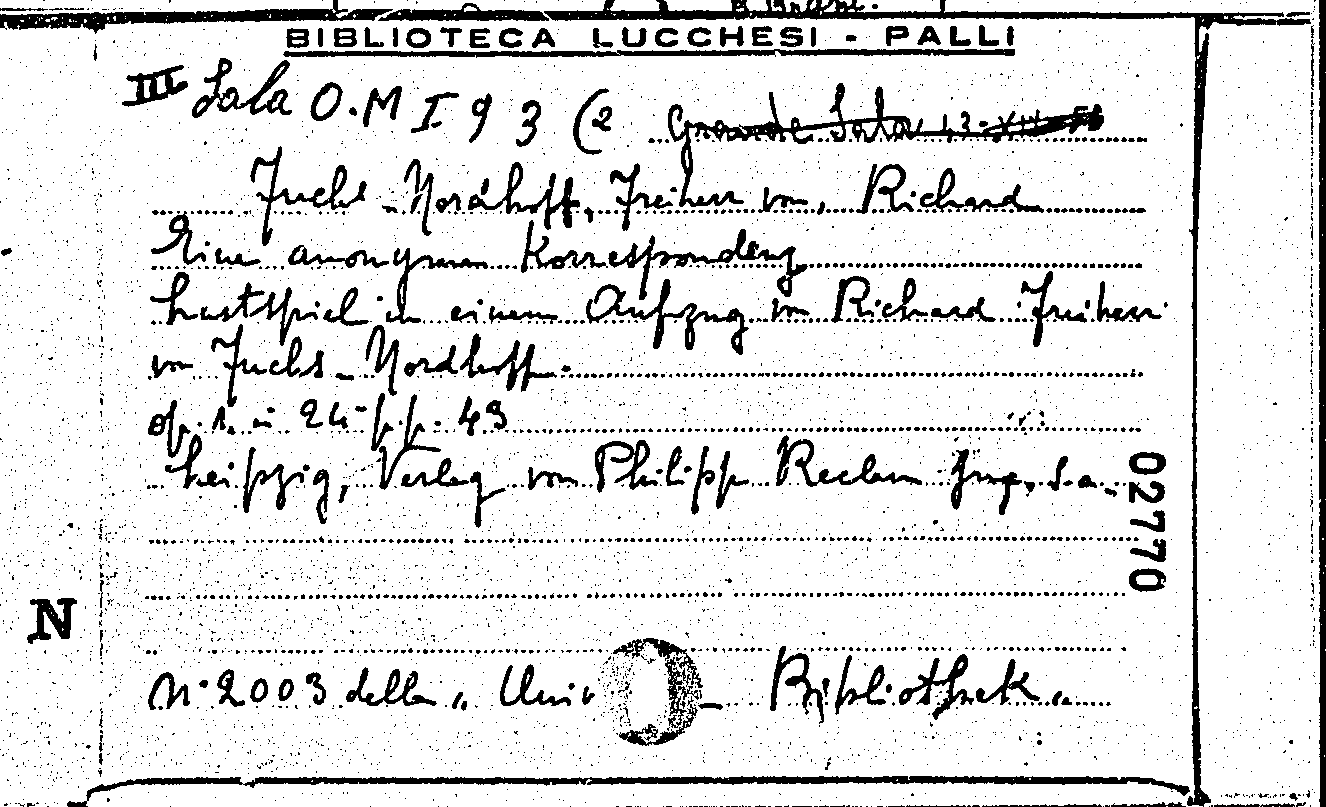 BIBLIOTECA LUCCHESI - PALLI
III Sala O.M I 9 3 (2 Grande Sala
Fuchs - Nordhoff, Freiherr von, Richard
Eine anonymen Korrespondenz
Lustspiel in einem Aufzug von Richard Freiherr
von Fuchs - Nordhoff.
op. 1. in 24° p.p. 43
Leipzig, Verlag von Philipp Reclam Jun, s.a.
02770
N
N° 2003 della „ Univ - Bibliothek „